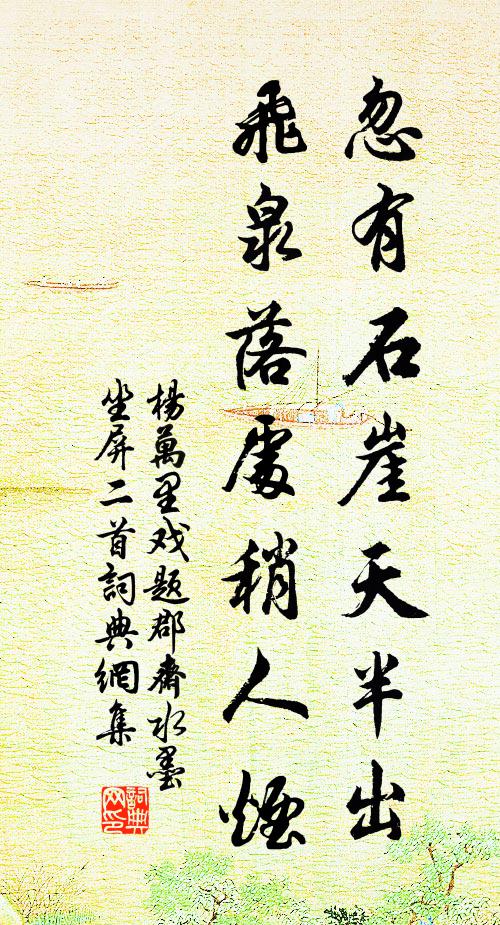 忽有石崖天半出
飛泉落處稍人煙
楊萬里戏題郡齋水墨
坐屏二首詞典網集
詞典
网印